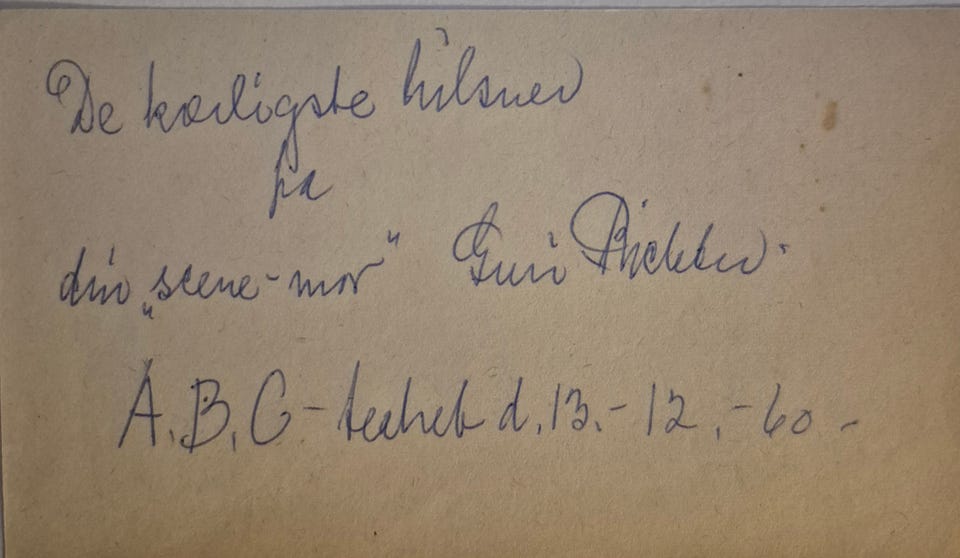 De kærligste hilsner
fra
din „scene-mor" Guri Richter.
A.B.C-teatret d. 13.-12.-60-